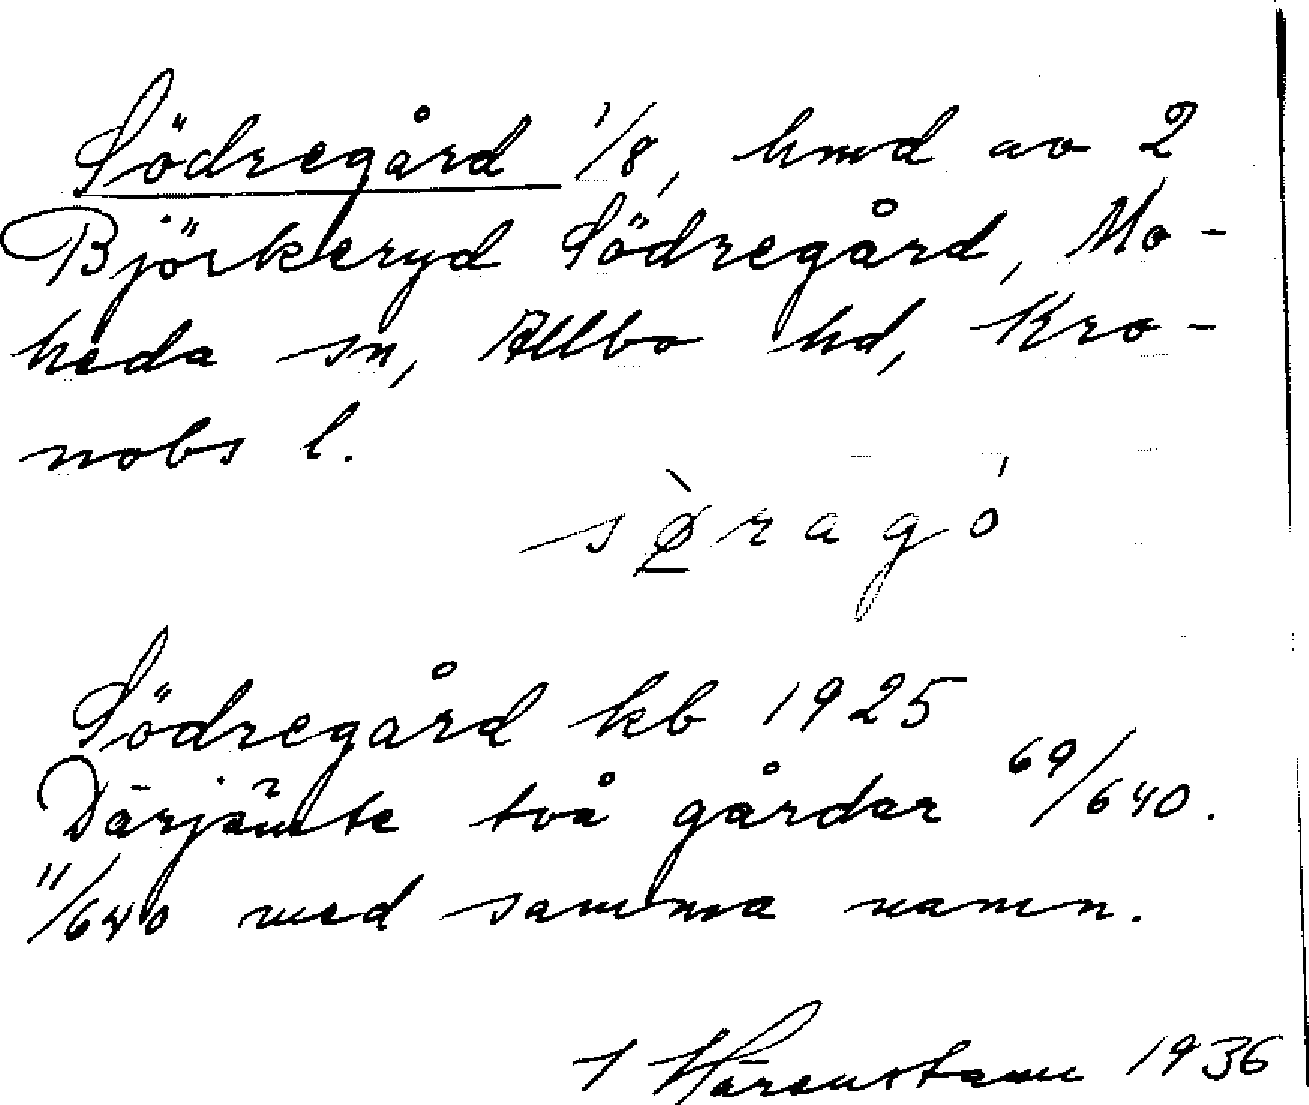 Södregård 1/8, hmd av 2
Björkeryd Södregård, Mo-
heda sn, Allbo hd, Kro-
nobs l.
sø̱̀ragó
Södregård kb 1925
Därjämte två gårdar 69/640.
11/640 med samma namn.
Härenstam 1936